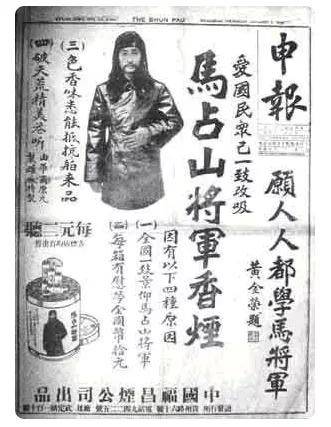 THE SHUN PAO
申報
願人人都學馬將軍
黃金榮題
愛國民眾已一致改吸
馬占山將軍香煙
因有以下四種原因
(一)全國一致景仰馬占山將軍
(二)每箱有慰勞金國幣拾元
(三)色香味悉能抵抗舶來品
(四)破天荒精美卷听
每元二聽
馬占山將軍
中國福昌煙公司出品